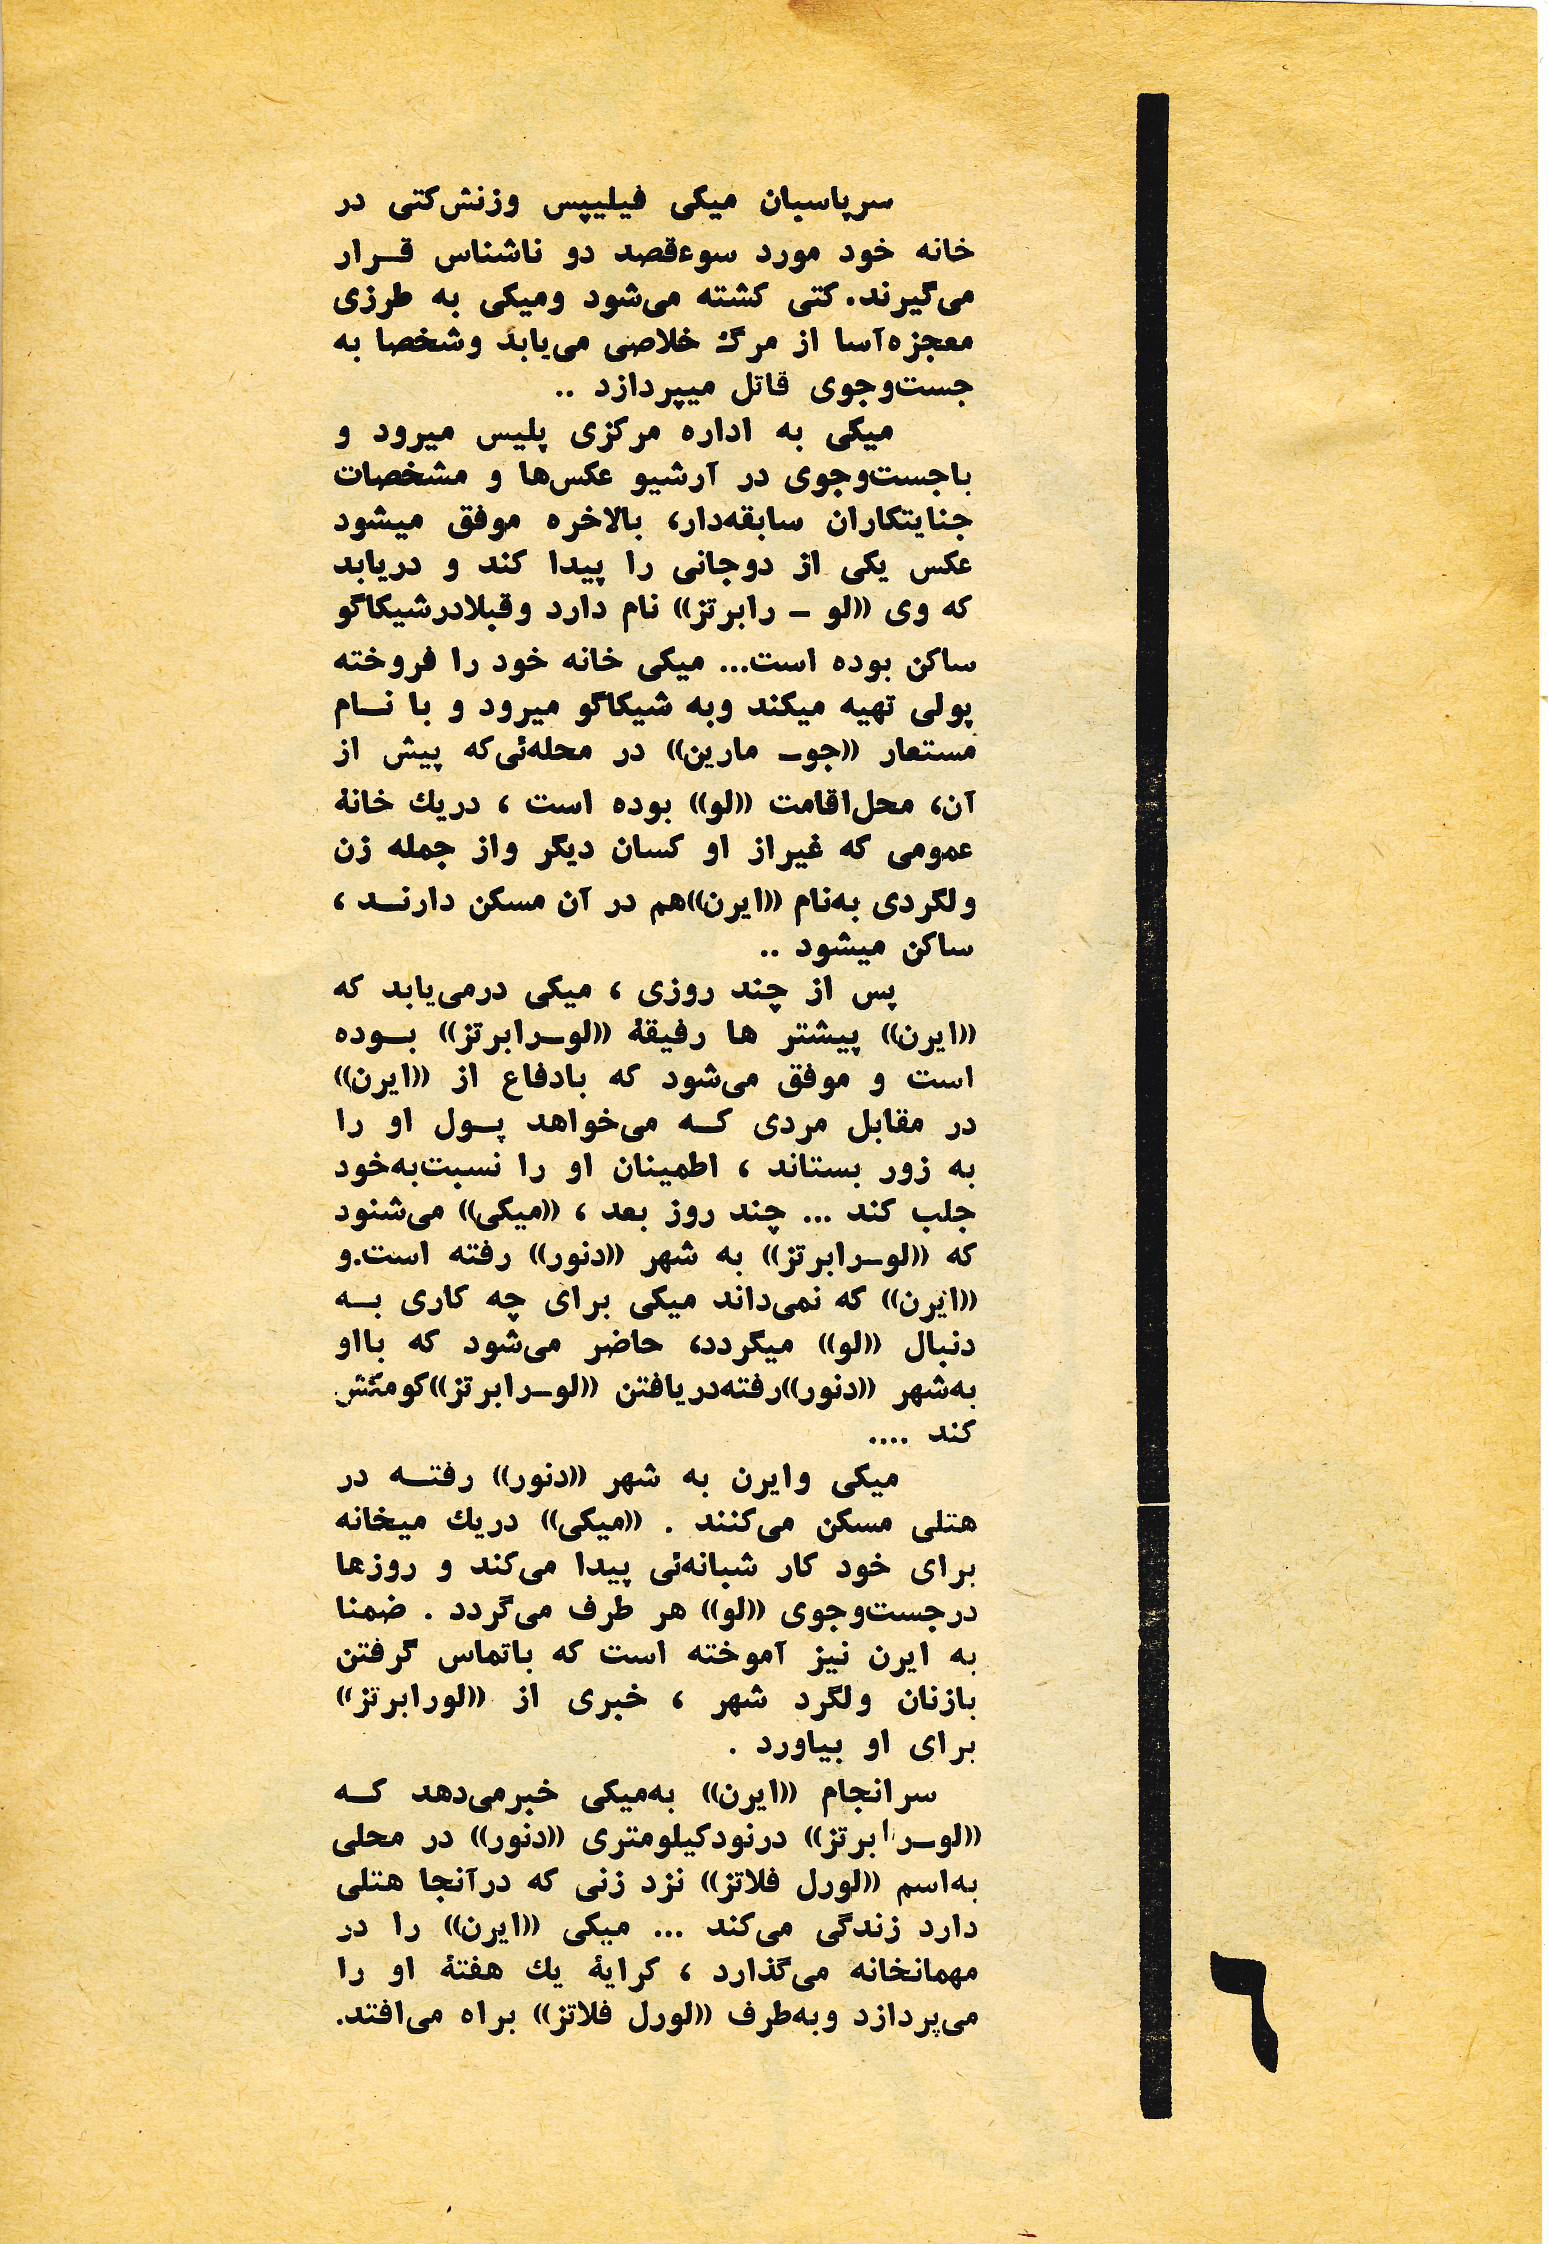 سرپاسبان میکی فیلیپس وزنش‌کتی در
خانه خود مورد سوءقصد دو ناشناس قـرار
می‌گیرند. کتی کشته می‌شود ومیکی به طرزی
معجزه‌آسا از مرگ خلاصی می‌یابد وشخصا به
جست‌وجوی قاتل میپردازد ..
میکی به اداره مرکزی پلیس میرود و
باجست‌وجوی در آرشیو عکس‌ها و مشخصات
جنایتکاران سابقه‌دار، بالاخره موفق میشود
عکس یکی از دوجانی را پیدا کند و دریابد
که وی ((لو ـ رابرتز)) نام دارد وقبلادرشیکاگو
ساکن بوده است... میکی خانه خود را فروخته
پولی تهیه میکند وبه شیکاگو میرود و با نـام
مستعار ((جوـ مارین)) در محله‌ئی‌که پیش از
آن، محل‌اقامت ((لو)) بوده است ، دریك خانهٔ
عمومی که غیراز او کسان دیگر واز جمله زن
ولگردی به‌نام ((ایرن))هم در آن مسکن دارنـد ،
ساکن میشود ..
پس از چند روزی ، میکی درمی‌یابد که
((ایرن)) پیشتر ها رفیقهٔ ((لوـرابرتز)) بـوده
است و موفق می‌شود که بادفاع از ((ایرن))
در مقابل مردی کـه می‌خواهد پـول او را
به زور بستاند ، اطمینان او را نسبت‌به‌خود
جلب کند ... چند روز بعد ، ((میکی)) می‌شنود
که ((لوـرابرتز)) به شهر ((دنور)) رفته است.و
((ایرن)) که نمی‌داند میکی برای چه کاری بـه
دنبال ((لو)) میگردد، حاضر می‌شود که بااو
به‌شهر ((دنور))رفته‌دریافتن ((لوـرابرتز))کومکش
کند ....
میکی وایرن به شهر ((دنور)) رفتـه در
هتلی مسکن می‌کنند . ((میکی)) دریك میخانه
برای خود کار شبانه‌ئی پیدا می‌کند و روزها
درجست‌وجوی ((لو)) هر طرف می‌گردد . ضمنا
به ایرن نیز آموخته است که باتماس گرفتن
بازنان ولگرد شهر ، خبری از ((لورابرتز))
برای او بیاورد .
سرانجام ((ایرن)) به‌میکی خبرمی‌دهد کـه
((لوـرابرتز)) درنودکیلومتری ((دنور)) در محلی
به‌اسم ((لورل فلاتز)) نزد زنی که درآنجا هتلی
دارد زندگی می‌کند ... میکی ((ایرن)) را در
مهمانخانه می‌گذارد ، کرایهٔ یك هفتهٔ او را
می‌پردازد وبه‌طرف ((لورل فلاتز)) براه می‌افتد.
٦